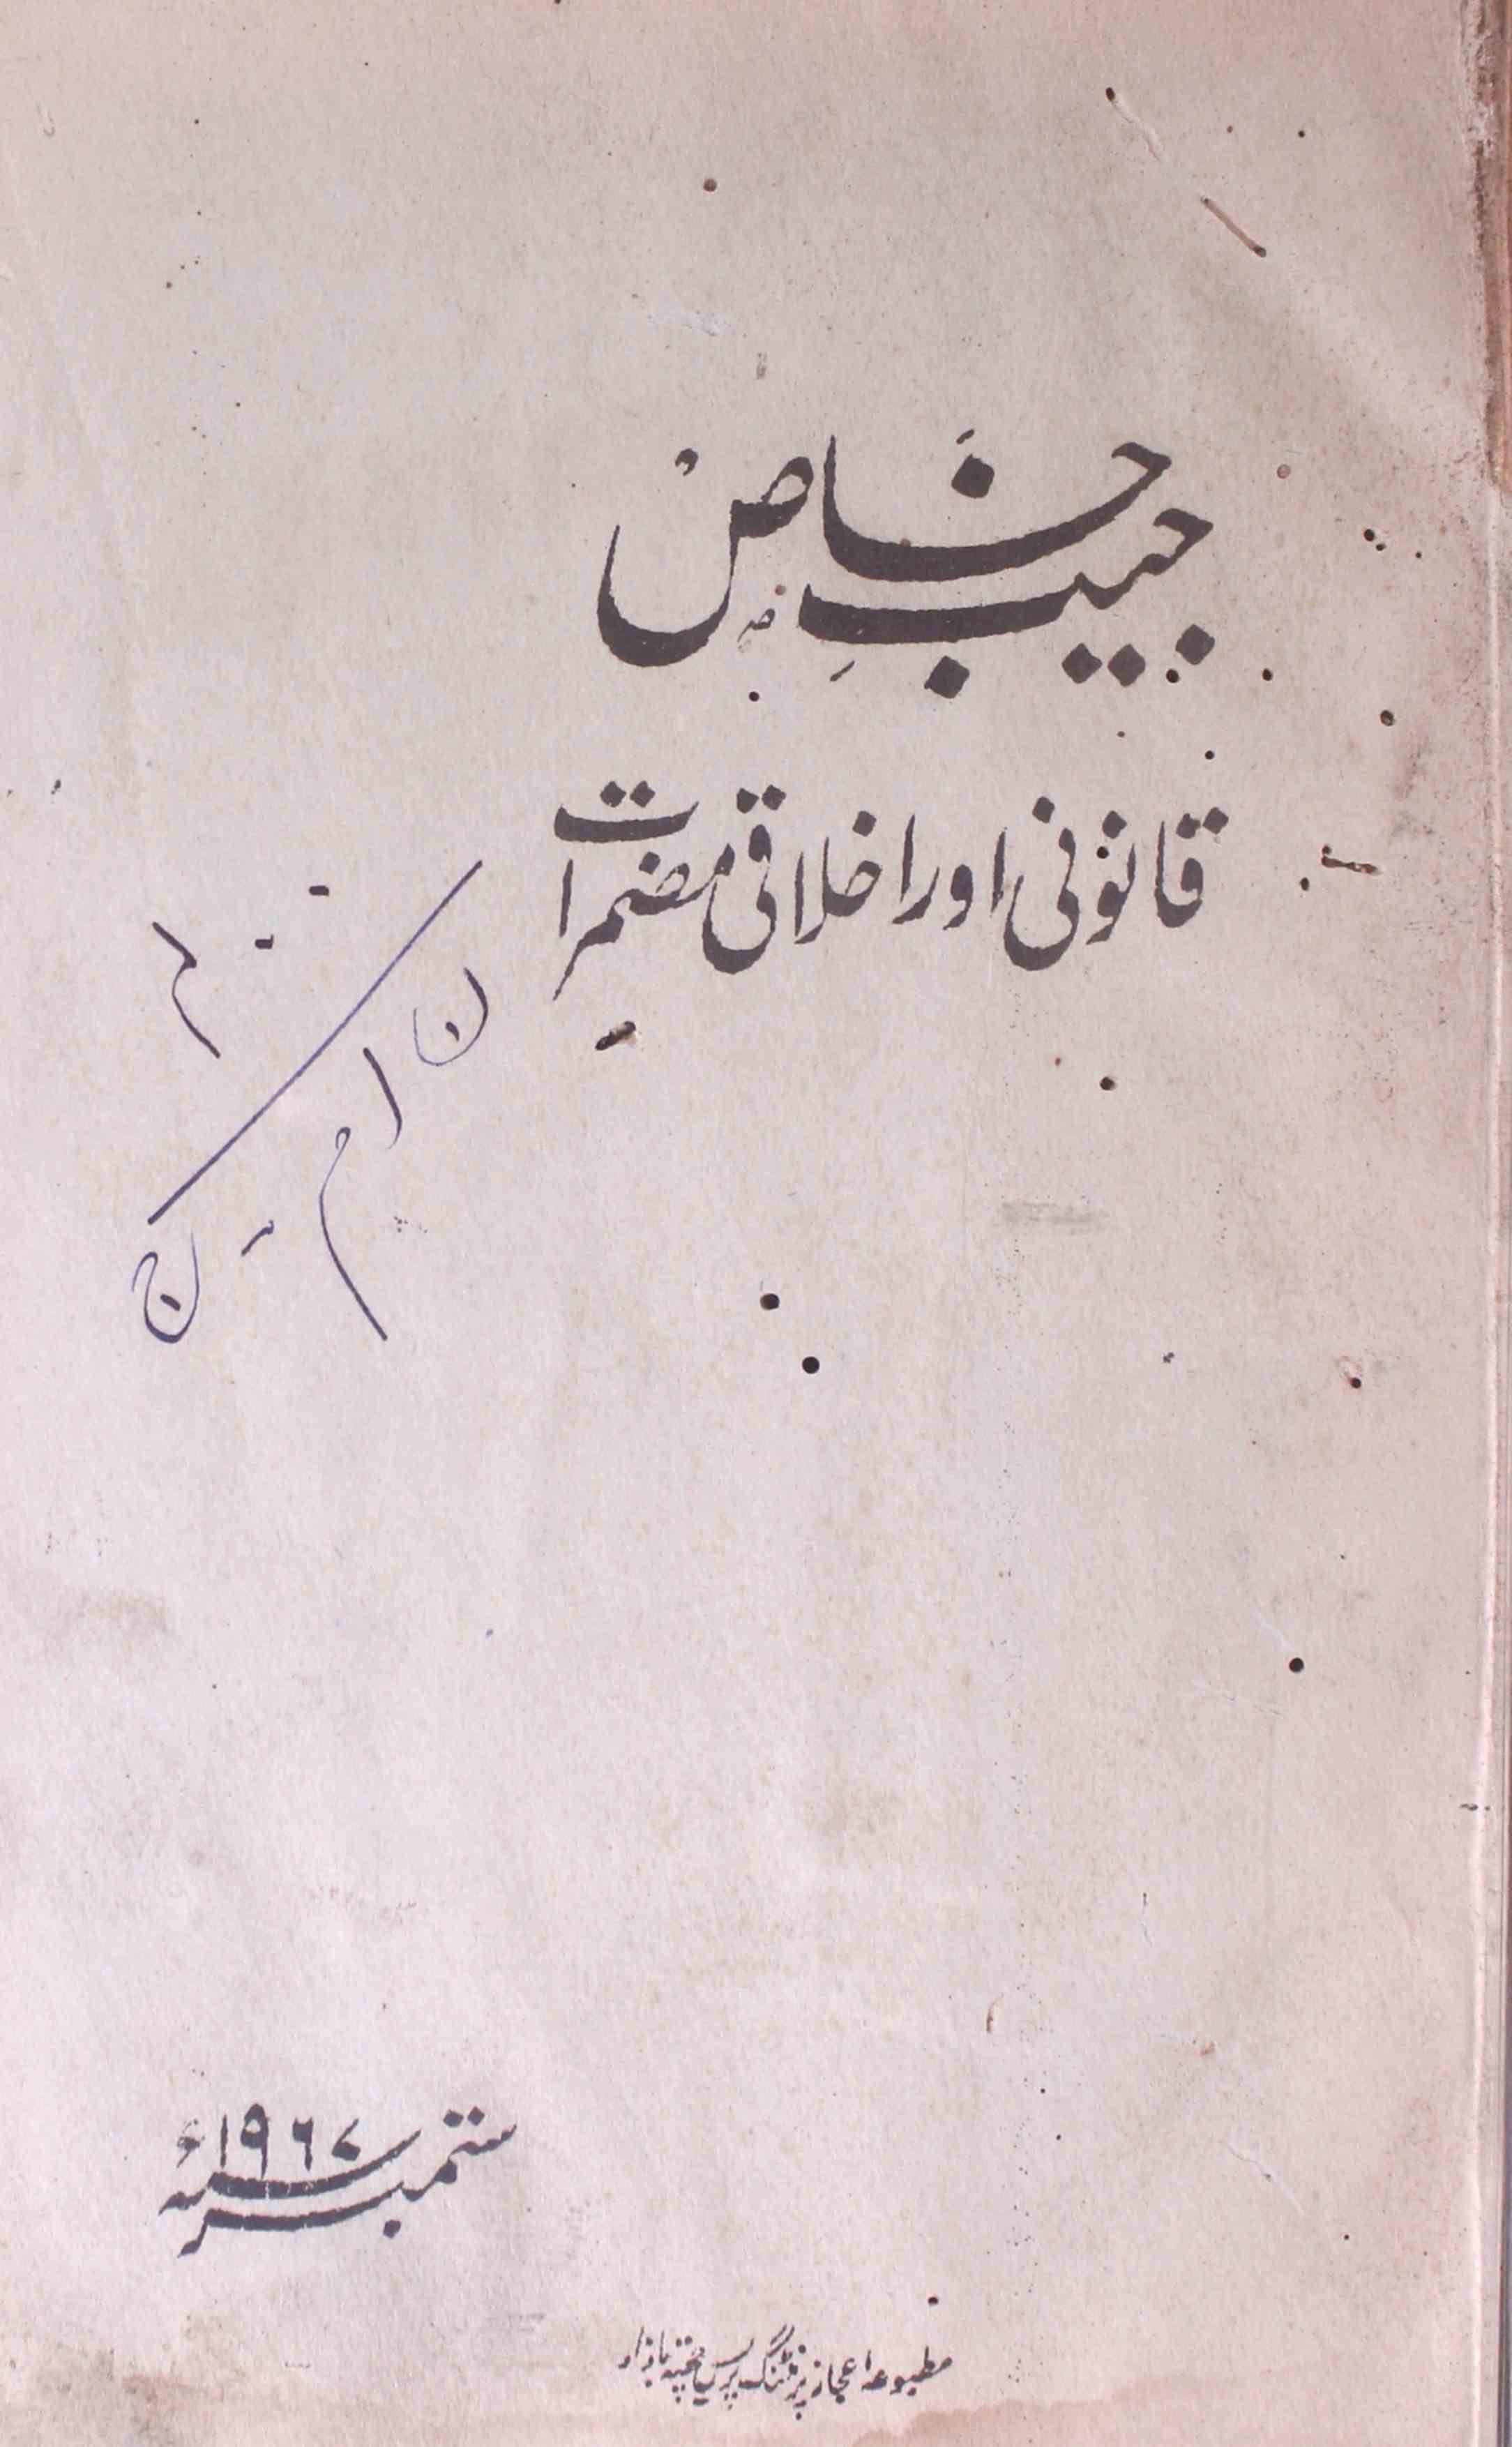 جیبِ خَاص
قانونی اور اخلاقی مضمرات
ستمبر سنہ ۱۹۶۷ء
مطبوعہ اعجاز پرنٹنگ پریس چھتہ بازار